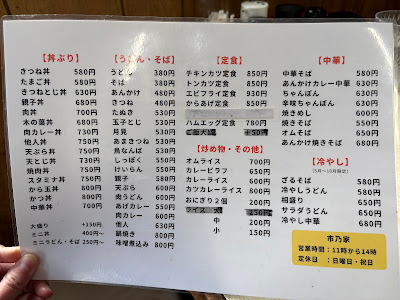 【丼ぶり】
きつね丼 580円
たまご丼 580円
きつねとじ丼 630円
親子丼 680円
肉丼 700円
木の葉丼 680円
肉カレー丼 730円
他人丼 730円
天ぷら丼 750円
天とじ丼 730円
焼肉丼 750円
スタミナ丼 750円
から玉丼 800円
かつ丼 800円
中華丼 700円
大盛り +150円
ミニ丼 400円~
ミニうどん・そば 250円~
【うどん・そば】
うどん 380円
そば 380円
あんかけ 480円
きつね 480円
たぬき 530円
玉子とじ 530円
月見 530円
あまきつね 530円
鳥なんば 580円
しっぽく 550円
けいらん 550円
親子 580円
天ぷら 600円
肉うどん 600円
あげカレー 550円
肉カレー 600円
他人 630円
鍋焼き 800円
味噌煮込み 800円
【定食】
チキンカツ定食 850円
トンカツ定食 850円
エビフライ定食 930円
からあげ定食 850円
ハムエッグ定食 780円
ご飯大盛 +50円
【炒め物・その他】
オムライス 700円
カレーピラフ 650円
カレーライス 600円
カツカレーライス 800円
おにぎり2個 200円
ライス 大 250円
中 200円
小 150円
【中華】
中華そば 580円
あんかけカレー中華 630円
ちゃんぽん 630円
辛味ちゃんぽん 630円
焼きめし 600円
焼きそば 550円
オムそば 650円
あんかけ焼きそば 680円
【冷やし】
(5月~10月限定)
ざるそば 580円
冷やしうどん 580円
相盛り 650円
サラダうどん 650円
冷やし中華 680円
市乃家
営業時間：11時から14時
定休日 ：日曜日・祝日